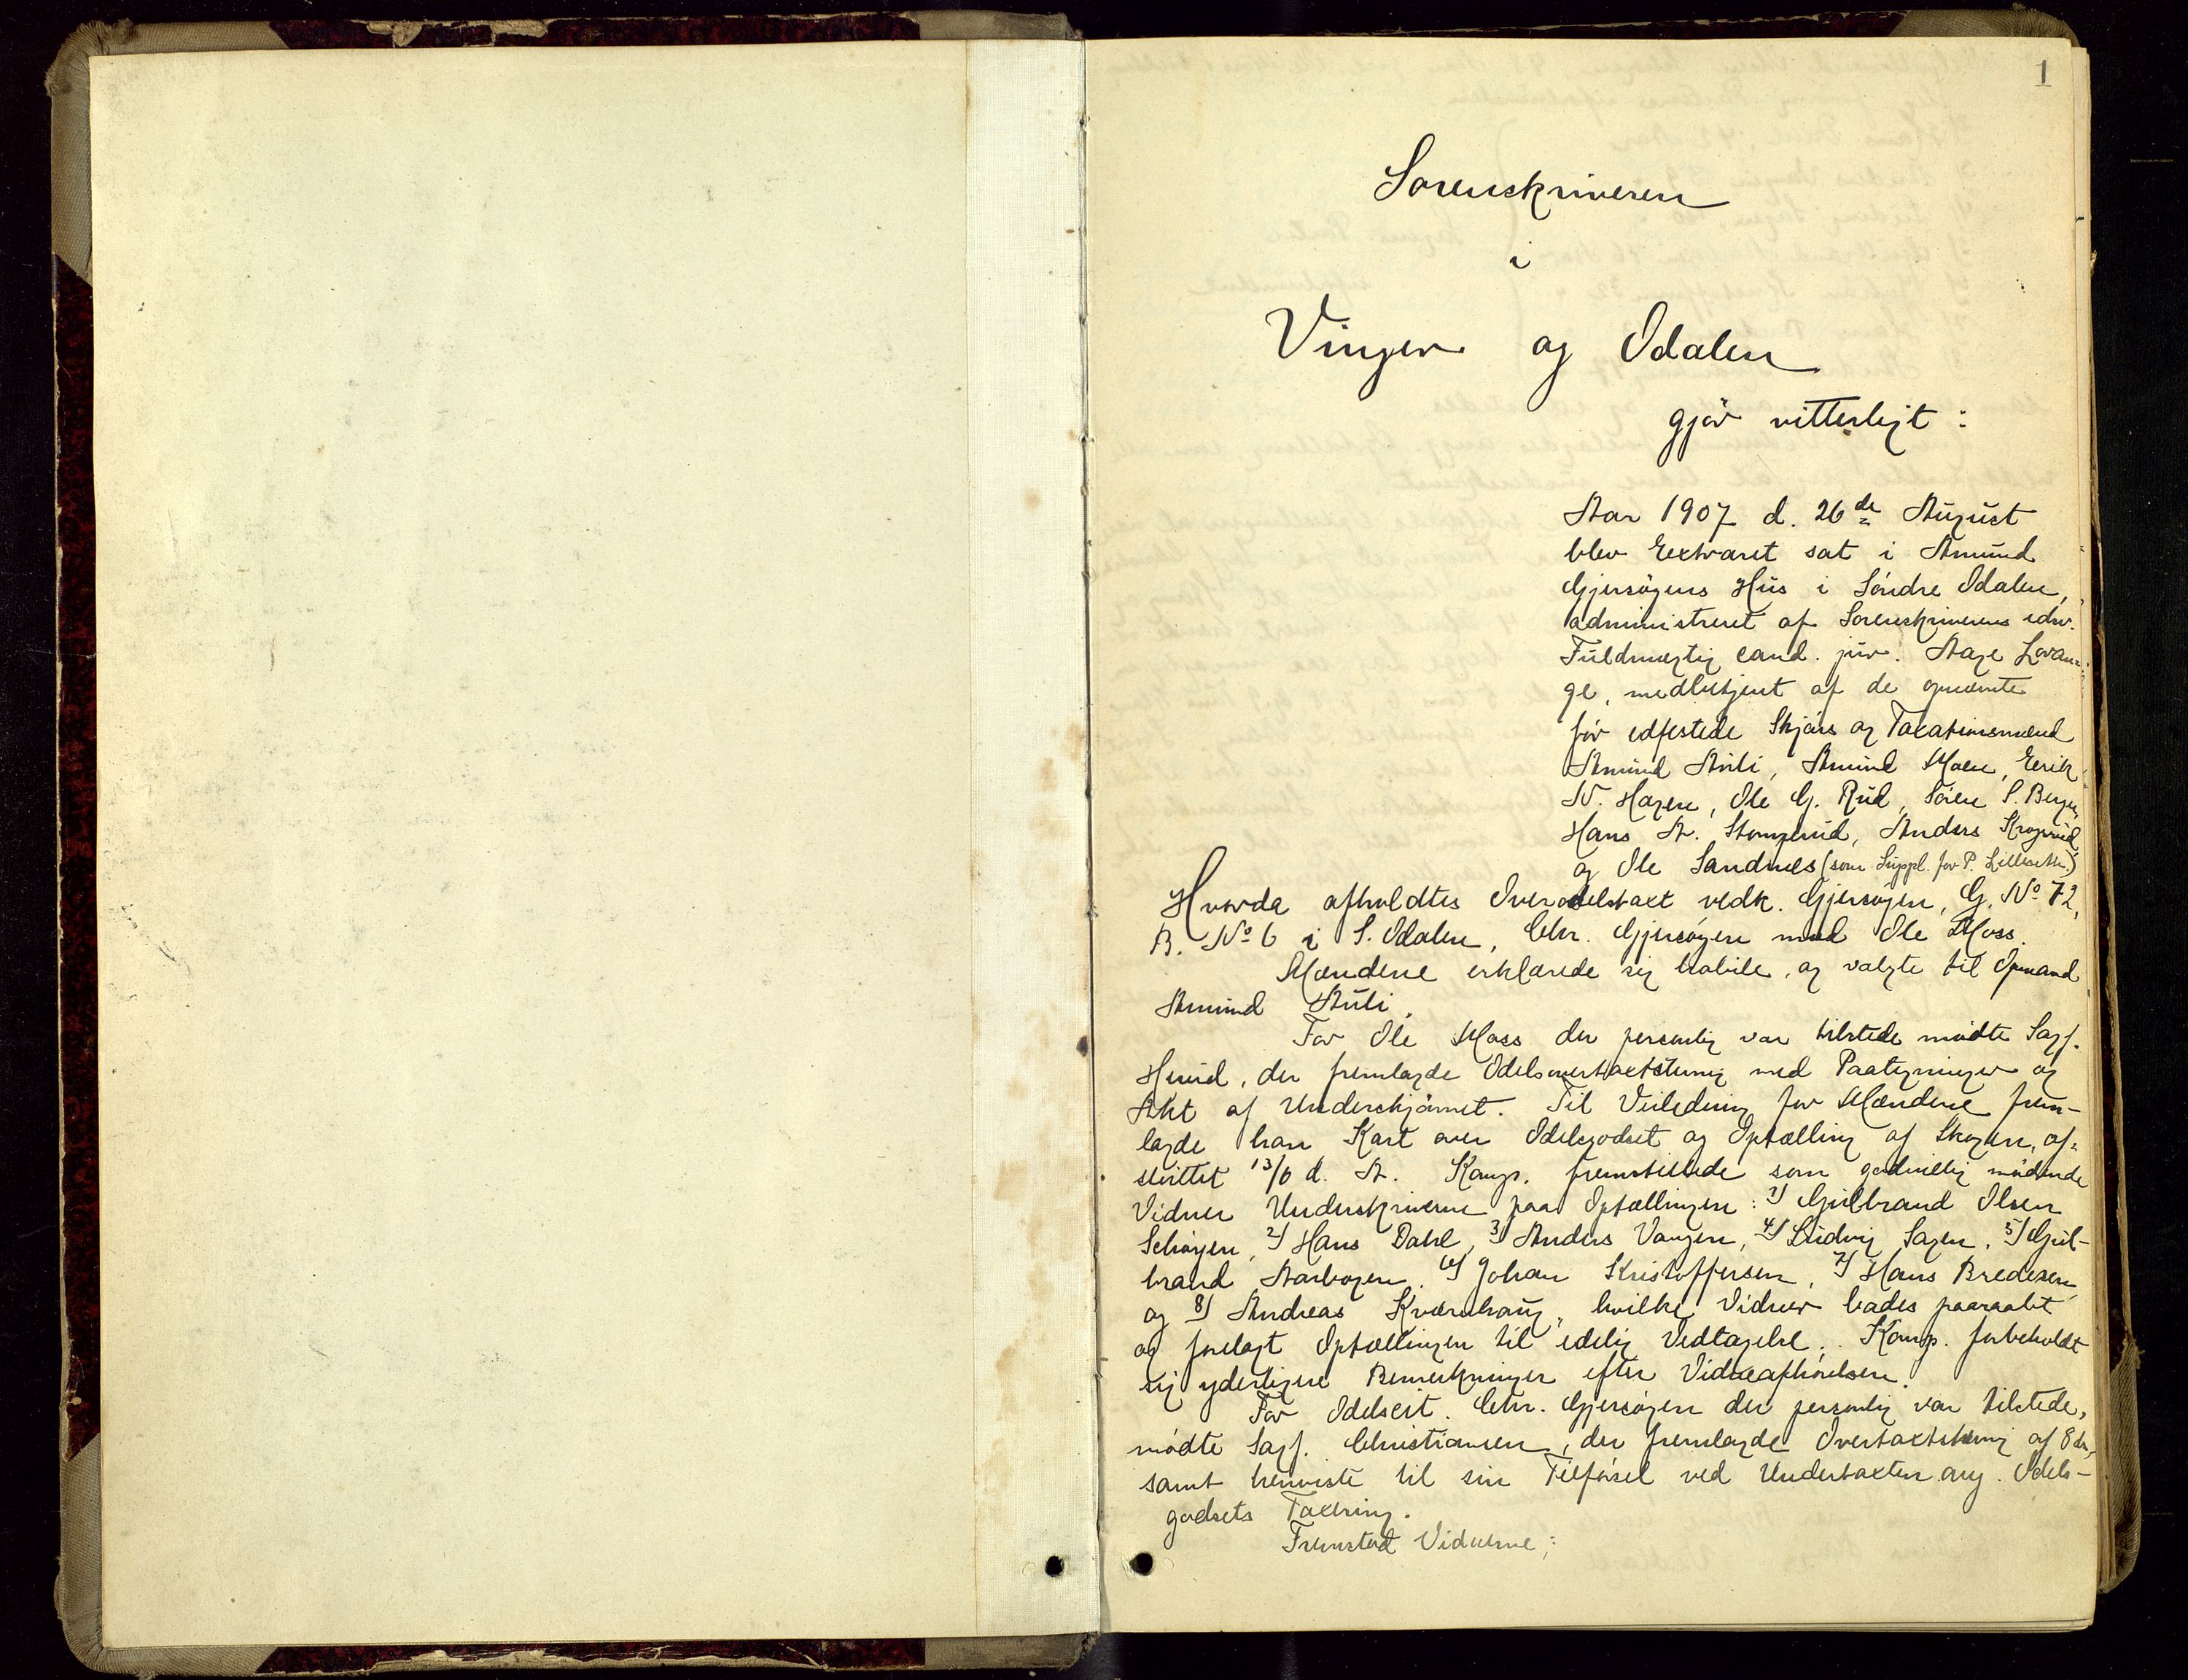 1
Sorenskriveren
i
Vinger og Odalen
gjör vitterligt:
Aar 1907 d. 26de August
blev Extraret sat i Amund
Gjersøyens Hus i Söndre Odalen,
administreret af Sorenskriverens edsv.
Fuldmægtig cand. jur. Aage Lovan=
ge, medbetjent af de opnævnte
för edfestede Skjöns og Taxationsmænd
Amund Auli, Amund Moen, Eerik
N. Hagen, Ole G. Rud, Sören S. Berger,
Hans A. Stomperud, Anders Krogsrud,
og Ole Sandnes (som Suppl. for P. Lilleseth.)
Hvorda afholdtes Overodelstaxt vedk. Gjersøyen, G. No 72,
B. No 6 i S. Odalen, Chr. Gjersøyen mod Ole Moss.
Mændene erklærede sig habile, og valgte til Opmand
Amund Auli.
For Ole Moss der personlig var tilstede mödte Sagf.
Hserud, der fremlagde Odelsovertaxtstevning med Paategninger og
Akt af Underskjönnet. Til Veiledning for Mændene frem-
lagde han Kart over Odelsgodset og Optælling af Skogen, af=
sluttet 13/6 d. A. Komp. fremstillede som godvillig mödende
Vidner Underskriverne paa Optællingen: 1) Gulbrand Olsen
Schøyen, 2) Hans Dahl, 3) Anders Vangen, 4) Ludvig Sagen, 5) Gul-
brand Aarbogen, 6) Johan Kristoffersen, 7) Hans Bredesen
og 8) Andreas Kværnhaug, hvilke Vidner bades paaraabt
og forelagt Optællingen til edelig Vedtagelse. Komp. forbeholdt
sig yderligere Bemerkninger efter Vidneafhörelsen.
For Odelscit. Chr. Gjersøyen der personlig var tilstede,
mödte Sagf. Christiansen, der fremlagde Overtaxtstevning af 8 ds,
samt henviste til sin Tilförsel ved Undertaxten ang. Odels-
godsets Taxering.
Fremstod Vidnerne;